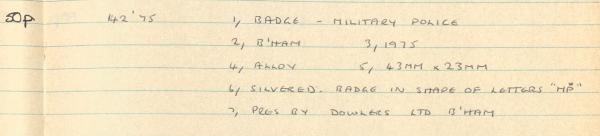 50p 142'75 1, BADGE - MILITARY POLICE
2, B'HAM 3, 1975
4, ALLOY 5, 43MM x 23MM
6, SILVERED. BADGE IN SHAPE OF LETTERS "MP"
7, PRES BY DOWLERS LTD B'HAM